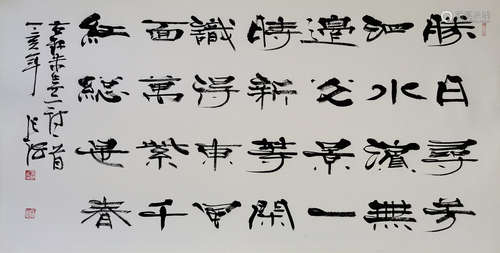 勝日尋芳
泗水濱無
邊光景一
時新等閑
識得東風
面萬紫千
紅總是春
朱熹詩一首
亥年